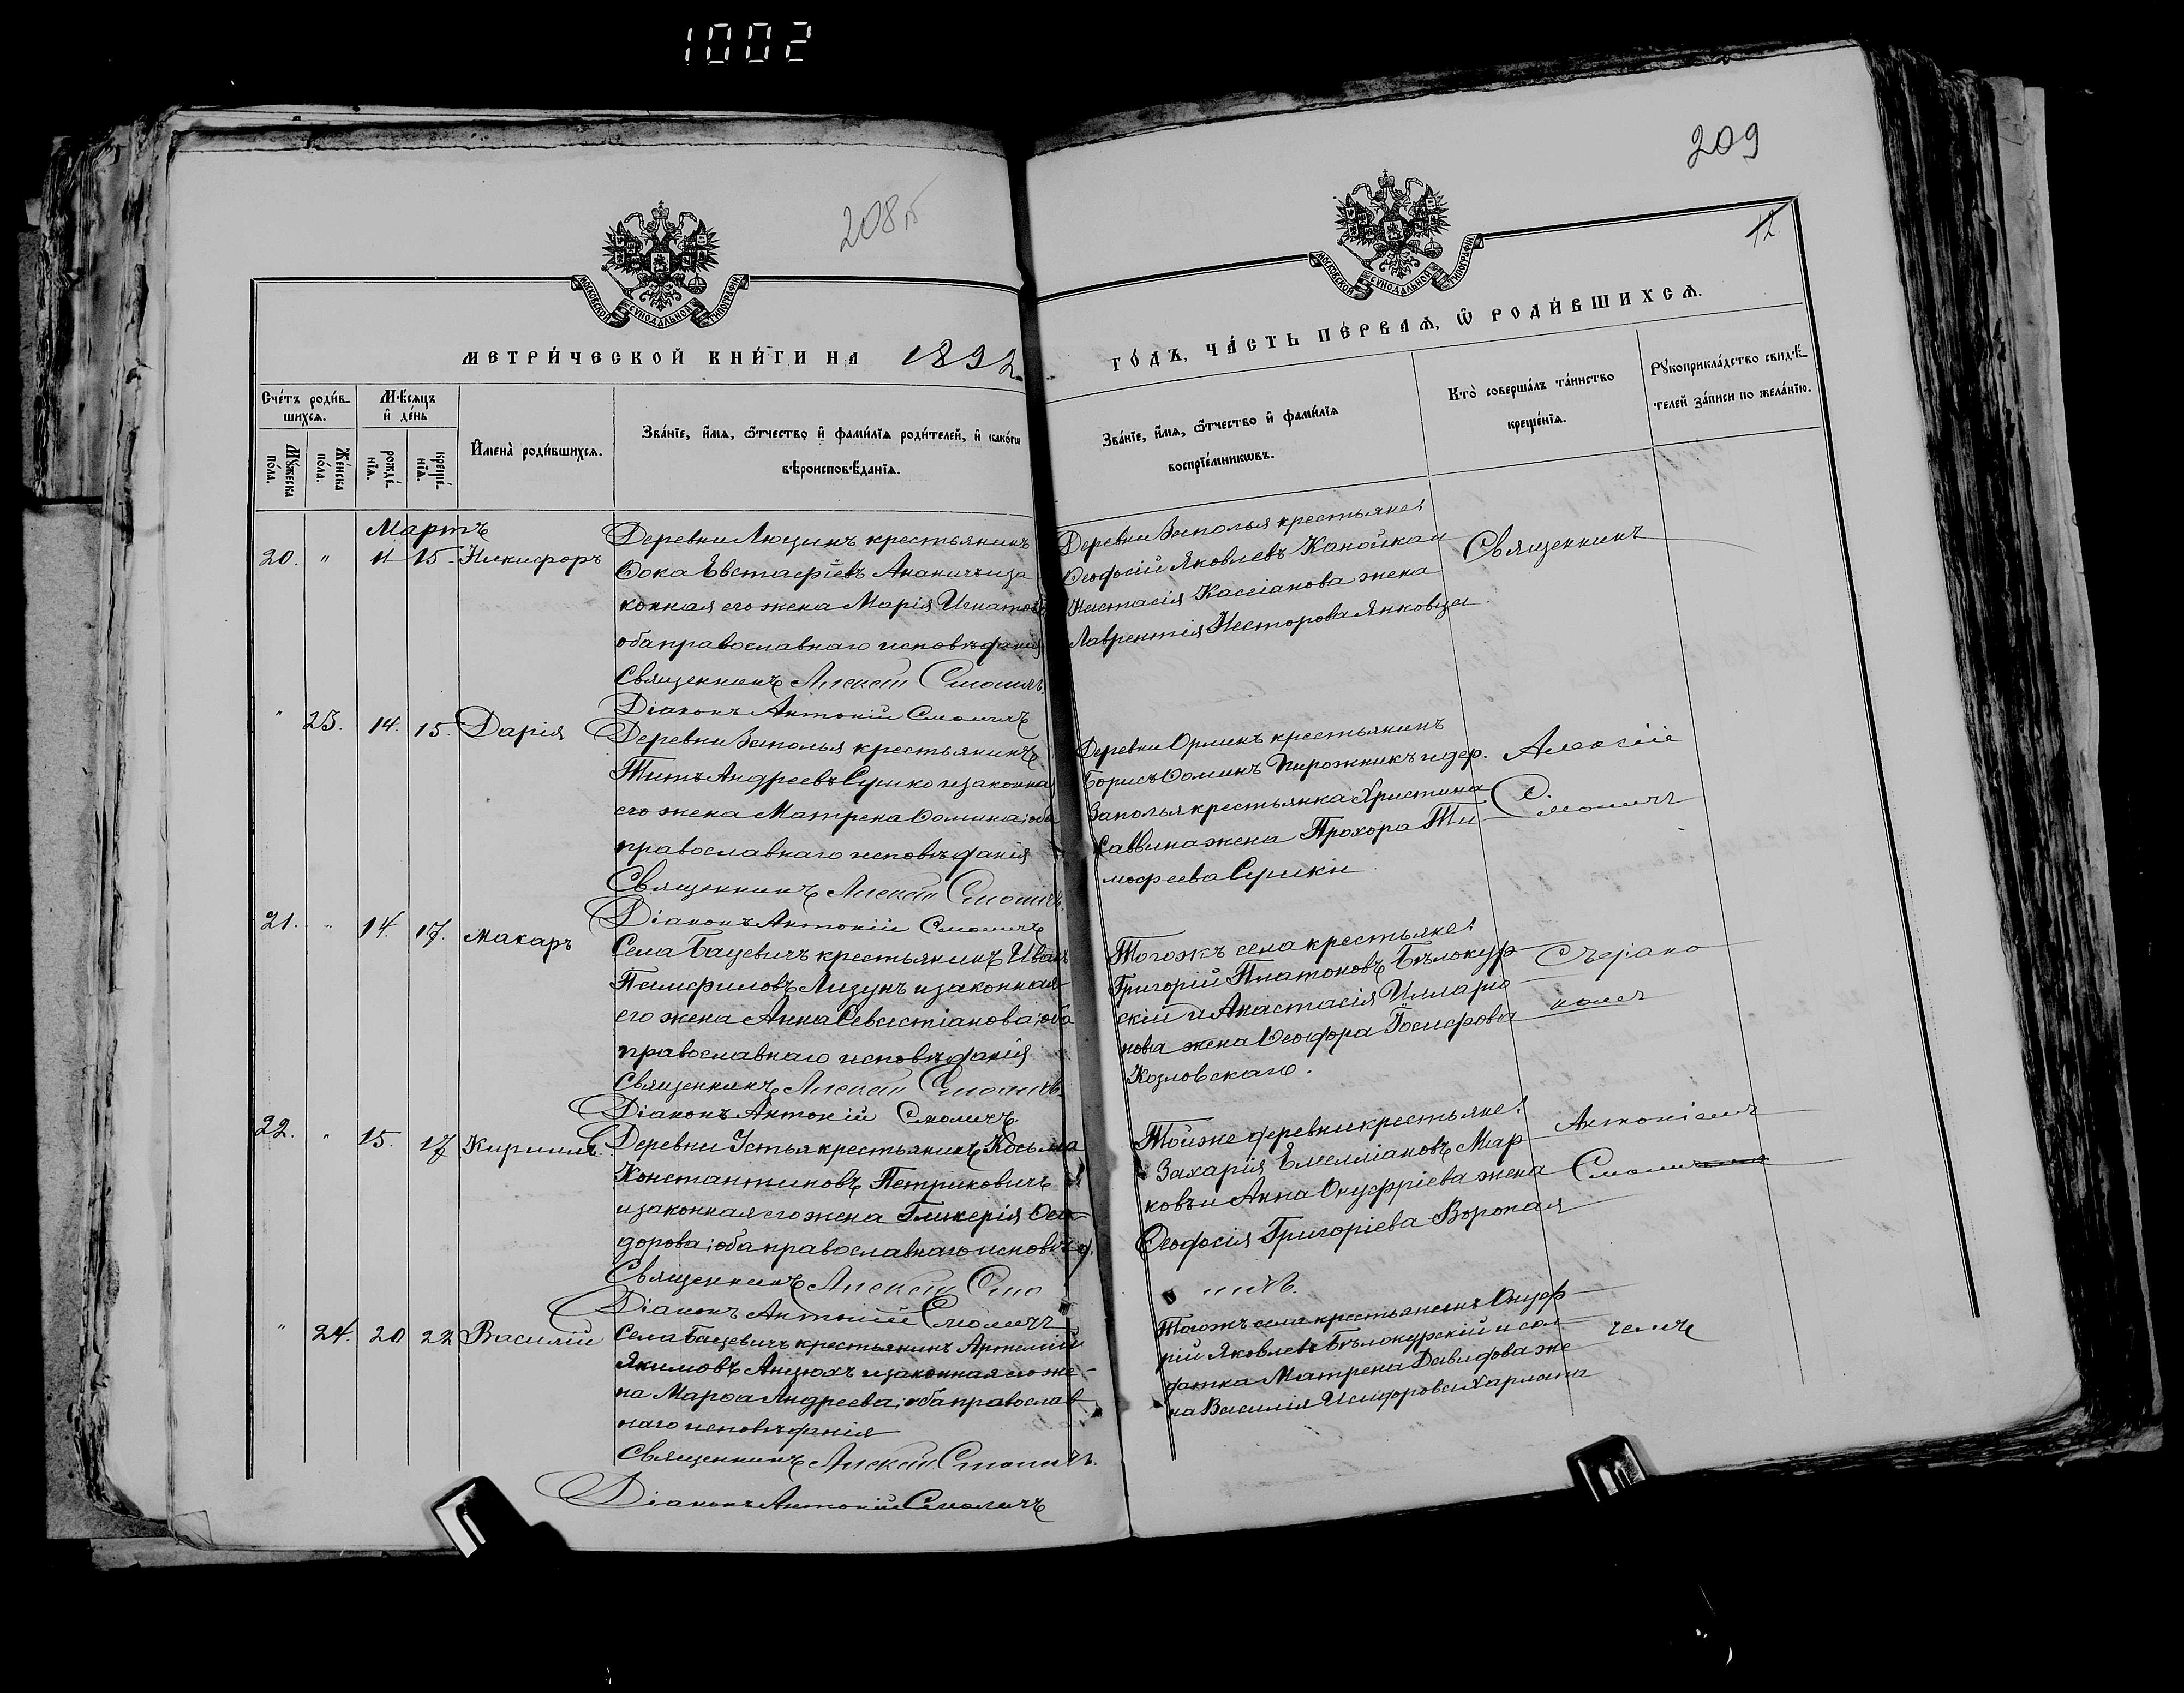 1002
208 об
209
12
МОСКОВСКОЙ СѴНОДАЛЬНОЙ ТИПОГРАФІИ
МОСКОВСКОЙ СѴНОДАЛЬНОЙ ТИПОГРАФІИ
МЕТРИ́ЧЕСКОЙ КНИ́ГИ НА 1892
ГО́ДЪ, ЧА́СТЬ ПЕ́РВАѦ, Ѡ҆ РОДИ́ВШИХСѦ.
Сче́тъ роди́в-
шихсѧ.
Мꙋ́жеска по́ла.
Же́нска по́ла.
Мѣ́сѧцъ
и҆ де́нь
рожде́-
нїѧ.
креще́-
нїѧ.
И҆мена̀ роди́вшихсѧ.
Зва́нїе, и҆́мѧ, ѻ҆́тчество и҆ фами́лїѧ роди́телей, и҆ како́гѡ
вѣроисповѣ́данїѧ.
Зва́нїе, и҆́мѧ, ѻ҆́тчество и҆ фами́лїѧ
воспрїе́мникѡвъ.
Кто̀ соверша́лъ та́инство
креще́нїѧ.
Рꙋкоприкла́дство свидѣ́-
телей за́писи по жела́нїю.
Мартъ
20. " 11 15 Никифоръ
Деревни Люцинъ крестьянинъ
Ѳока Евстафіевъ Ананичъ и за
конная его жена Марія Игнатова
оба православнаго исповѣданія
Священникъ Алексій Смоличъ.
Діаконъ Антоній Смоличъ
Деревни Заполья крестьяне:
Ѳеодосій Яковлевъ Канойка и
Настасія Кассіанова жена
Лаврентія Несторова Янковца.
Священникъ
" 23. 14. 15. Дарія
Деревни Заполья крестьянинъ
Титъ Андреевъ Сушко и законная
его жена Матрена Ѳомина; оба
православнаго исповѣданія
Священникъ Алексій Смоличъ.
Діаконъ Антоній Смоличъ
Деревни Орлинъ крестьянинъ
Борисъ Ѳоминъ Пирожникъ и дер.
Заполья крестьянка Христина
Саввина жена Прохора Ти-
мофеева Сушки
Алексій
Смоличъ
21. " 14. 17. Макаръ
Села Бацевичъ крестьянинъ Иванъ
Памфиловъ Лизунъ и законная
его жена Анна Севастіанова; оба
православнаго исповѣданія
Священникъ Алексій Смоличъ.
Діаконъ Антоній Смоличъ
Тогожъ села крестьяне:
Григорій Платоновъ Бѣлокур-
скій и Анастасія Илларіо-
нова жена Ѳеодора Іосифова
Козловскаго.
съ діако
номъ
22. " 15. 17 Кириллъ.
Деревни Устья крестьянинъ Косьма
Константиновъ Петриковичъ
и законная его жена Гликерія Ѳео-
дорова; оба православнаго исповѣд.
Священникъ Алексій Смо
личъ.
Діаконъ Антоній Смоличъ
Тойже деревни крестьяне:
Захарія Емелліановъ Мар-
ковъ и Анна Онуфріева жена
Ѳеодосія Григоріева Вороная
Антоніемъ
Смоли
" 24. 20 22 Василій
Села Бацевичъ крестьянинъ Артемій
Якимовъ Анцюхъ и законная его же-
на Марѳа Андреева; оба православ-
наго исповѣданія
Священникъ Алексій Смоличъ.
Діаконъ Антоній Смоличъ
Тогожъ села крестьянинъ Онуф-
рій Яковлевъ Бѣлокурскій и сол-
датка Матрена Давидова же
на Василія Исидорова Харлана
чемъ